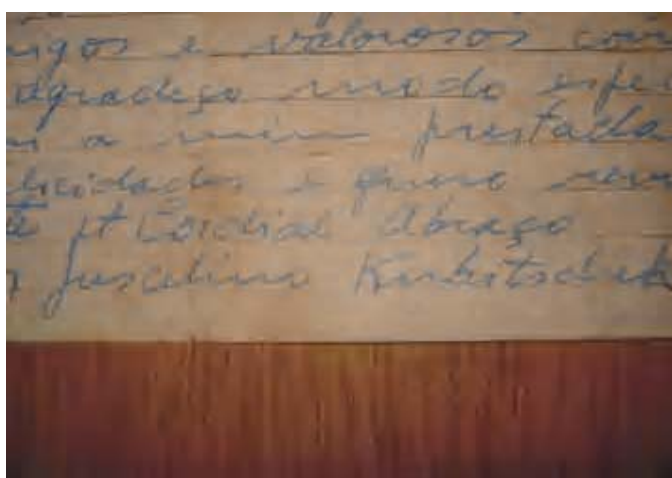 migos e valorosos com
agradeço modo espe
a mim prestada
licidades e
pt Cordial Abraço
Juscelino Kubitschek